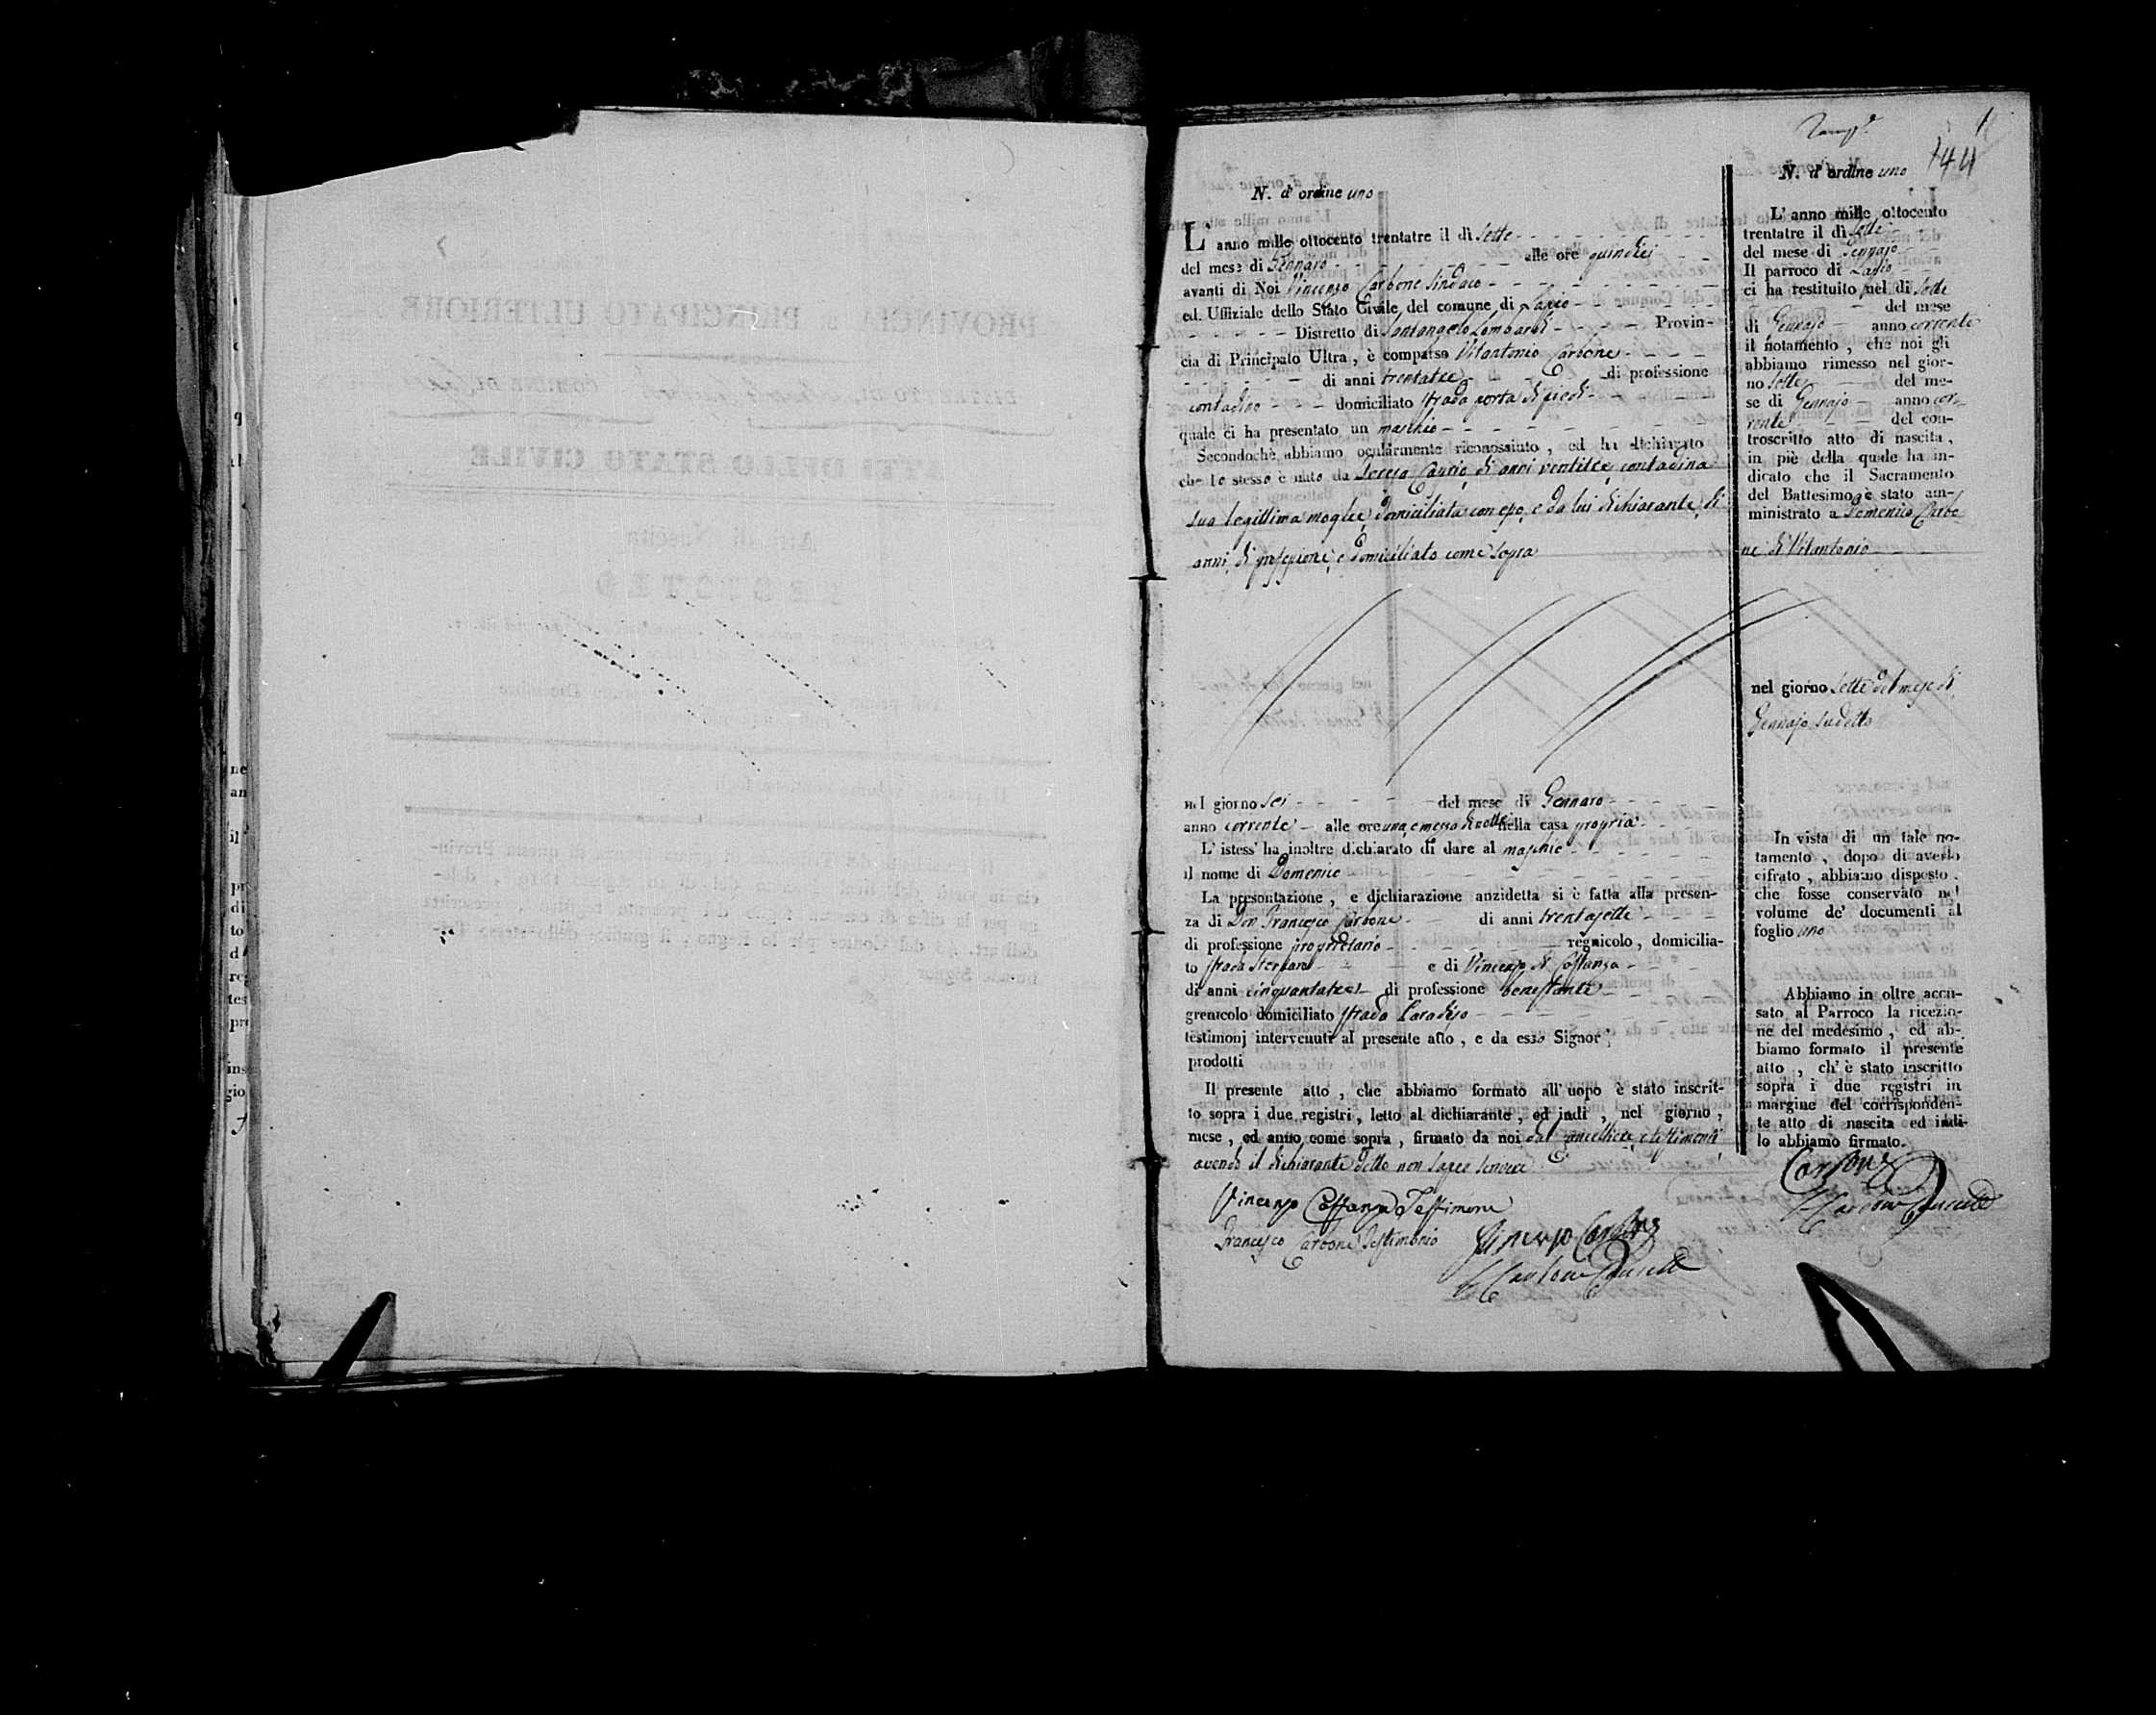 1
144
N. d' ordine uno
L' anno mille ottocento trentatre il dì Sette
del mese di Gennaro alle ore quindici
avanti di Noi Vincenzo Carbone Sindaco
ed Uffiziale dello Stato Civile del comune di
Distretto di Santangelo Lombardi Provin-
cia di Principato Ultra, è comparso Vitantonio Carbone
di anni trentatre di professione
contadino domiciliato strada porta di piedi
quale ci ha presentato un maschio
Secondochè abbiamo ocularmente riconosciuto, ed ha dichiarato
che lo stesso è nato da Teresa di anni ventitre contadina
sua legittima moglie, domiciliata con esso, e da lui dichiarante, di
anni, di professione, e domiciliato come sopra
nel giorno sei del mese di Gennaro
anno corrente alle ore una, e mezza di notte nella casa propria
L' istess' ha inoltre dichiarato di dare al maschio
il nome di Domenico
La presentazione, e dichiarazione anzidetta si è fatta alla presen-
za di Don Francesco Carbone di anni trentasette
di professione proprietario regnicolo, domicilia-
to strada e di Vincenzo Costanza
di anni cinquantatre di professione benestante
grenicolo domiciliato strada Paradiso
testimonj intervenuti al presente atto, e da esso Signor
prodotti
Il presente atto, che abbiamo formato all' uopo è stato inscrit-
to sopra i due registri, letto al dichiarante, ed indi, nel giorno,
mese, ed anno come sopra, firmato da noi dal cancelliere, e testimonj
avendo il dichiarante detto non saper scrivere
Vincenzo Costanza Testimone
Francesco Carbone Testimonio
Vincenzo Carbone
N. d' ordine uno
L' anno mille ottocento
trentatre il dì Sette
del mese di Gennajo
Il parroco di
ci ha restituito nel dì Sette
del mese
di Gennajo anno corrente
il notamento, che noi gli
abbiamo rimesso nel gior-
no Sette del me-
se di Gennajo anno cor-
rente del con-
troscritto atto di nascita,
in piè della quale ha in-
dicato che il Sacramento
del Battesimo è stato am-
ministrato a Domenico Carbo-
ne di Vitantonio
nel giorno Sette del mese di
Gennajo sudetto
In vista di un tale no-
tamento, dopo di averlo
cifrato, abbiamo disposto
che fosse conservato nel
volume de' documenti al
foglio uno
Abbiamo in oltre accu-
sato al Parroco la ricezio-
ne del medesimo, ed ab-
biamo formato il presente
atto, ch' è stato inscritto
sopra i due registri in
margine del corrisponden-
te atto di nascita ed indi-
lo abbiamo firmato.
Carbone